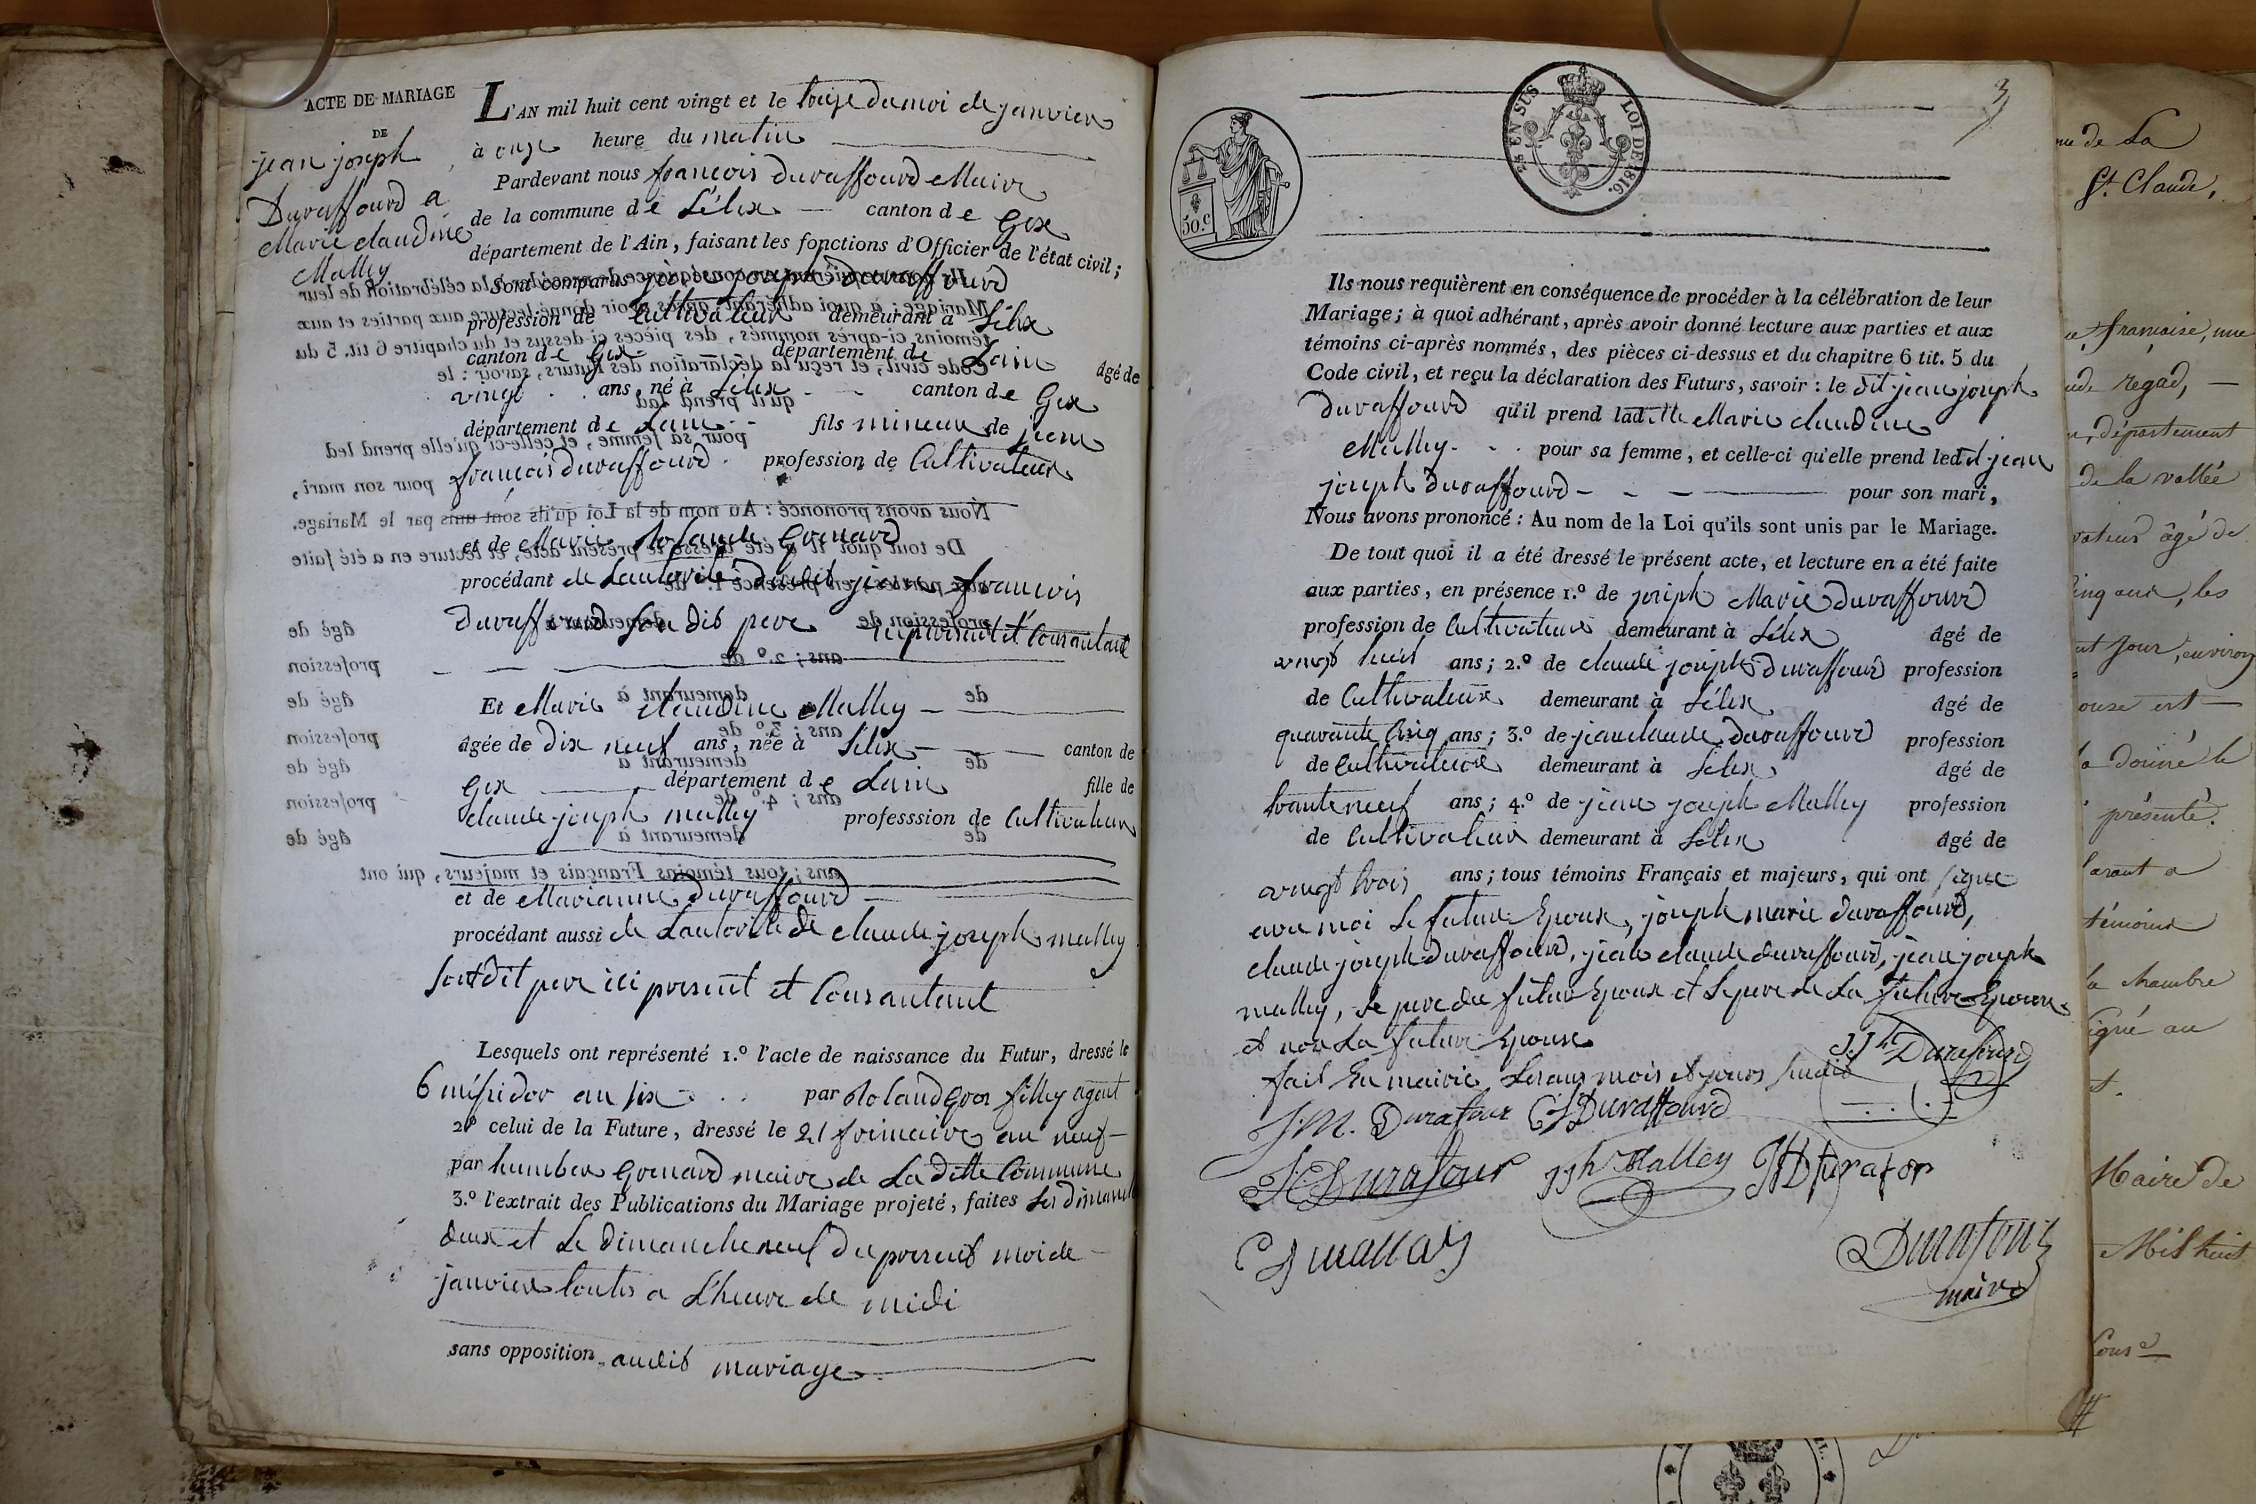 ACTE DE MARIAGE
DE
jean joseph
Duraffourd a
Marie claudine
Malley
L'AN mil huit cent vingt et le treize du moi de janvier
à onze heure du matin
Pardevant nous françois Duraffourd Maire
de la commune de Lélex canton de Gex
département de l'Ain, faisant les fonctions d'Officier de l'état civil;
Sont comparus jean joseph Duraffourd
profession de Cultivateur demeurant à Lélex
canton de Gex département de Lain âgé de
vingt ans, né à Lélex canton de Gex
département de Lain fils mineur de jean
françois duraffourd profession de Cultivateur
et de Marie Rolande Grenard
procédant de Lautorité dudit jean françois
duraffourd son dit pere présent et Consentant
Et Marie claudine Malley
âgée de dix neuf ans, née à Lélex canton de
Gex département de Lain fille de
claude joseph malley professsion de Cultivateur
et de Marianne Duraffourd
procédant aussi de Lautorité de claude joseph malley
sondit pere ici present et Consentant
Lesquels ont représenté 1.º l'acte de naissance du Futur, dressé le
6 méssidor an six par Roland gros filley agent
2º celui de la Future, dressé le 21 frimaire an neuf
par humber Grenard maire de La ditte Commune
3.º l'extrait des Publications du Mariage projeté, faites Les dimanche
deux et Le dimanche neuf du present moi de
janvier toutes a L'heure de midi
sans opposition audit mariage
3
50.c
2.s EN SUS LOI DE 1816.
Ils nous requièrent en conséquence de procéder à la célébration de leur
Mariage; à quoi adhérant, après avoir donné lecture aux parties et aux
témoins ci-après nommés, des pièces ci-dessus et du chapitre 6 tit. 5 du
Code civil, et reçu la déclaration des Futurs, savoir: le dit jean joseph
Duraffourd qu'il prend laditte Marie claudine
Malley pour sa femme, et celle-ci qu'elle prend ledit jean
joseph duraffourd pour son mari,
Nous avons prononcé: Au nom de la Loi qu'ils sont unis par le Mariage.
De tout quoi il a été dressé le présent acte, et lecture en a été faite
aux parties, en présence 1.º de joseph Marie Duraffourd
profession de Cultivateur demeurant à Lélex âgé de
vingt huit ans; 2.º de claude joseph duraffourd profession
de Cultivateur demeurant à Lélex âgé de
quarante Cinq ans; 3.º de jean claude Duraffourd profession
de Cultivateur demeurant à Lélex âgé de
trante neuf ans; 4.º de jean joseph Malley profession
de Cultivateur demeurant à Lélex âgé de
vingt trois ans; tous témoins Français et majeurs, qui ont signé
avec moi Le futur Epoux, joseph marie duraffourd,
claude joseph duraffourd, jean claude duraffourd, jean joseph
malley, Le pere du futur Epoux et Le pere de La future Epouse
et non La future Epouse
fait En mairie Les an mois et jours susdit
JJh Duraffourd
J.M. Durafour CJ Duraffourd
JC Durafour JJh Malley JF Durafor
CJ mallay
Durafour
maire
me de La
St. Claude,
française, une
régad,
département
de la vallée
âgé de
cinq ans, les
jour, environ
est
a donné le
présenté.
témoins
la chambre
signé au
Maire de
Mil huit